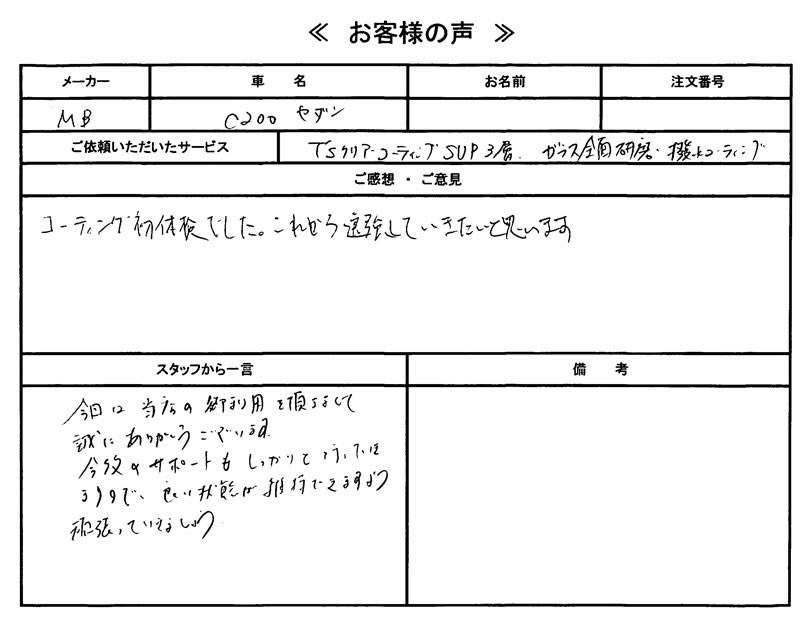 ≪ お客様の声 ≫
メーカー 車 名 お名前 注文番号
MB C200 セダン
ご依頼いただいたサービス TSクリアーコーティングSUP3層. ガラス全面研磨・撥水コーティング
ご感想 ・ ご意見
コーティング初体検でした。これから勉強していきたいと思います
スタッフから一言 備 考
今回は当店の御利用を頂きまして
誠にありがとうございます.
今後のサポートもしっかりと行ってまい
りますので、良い状態が維持できますよう
頑張っていきましょう